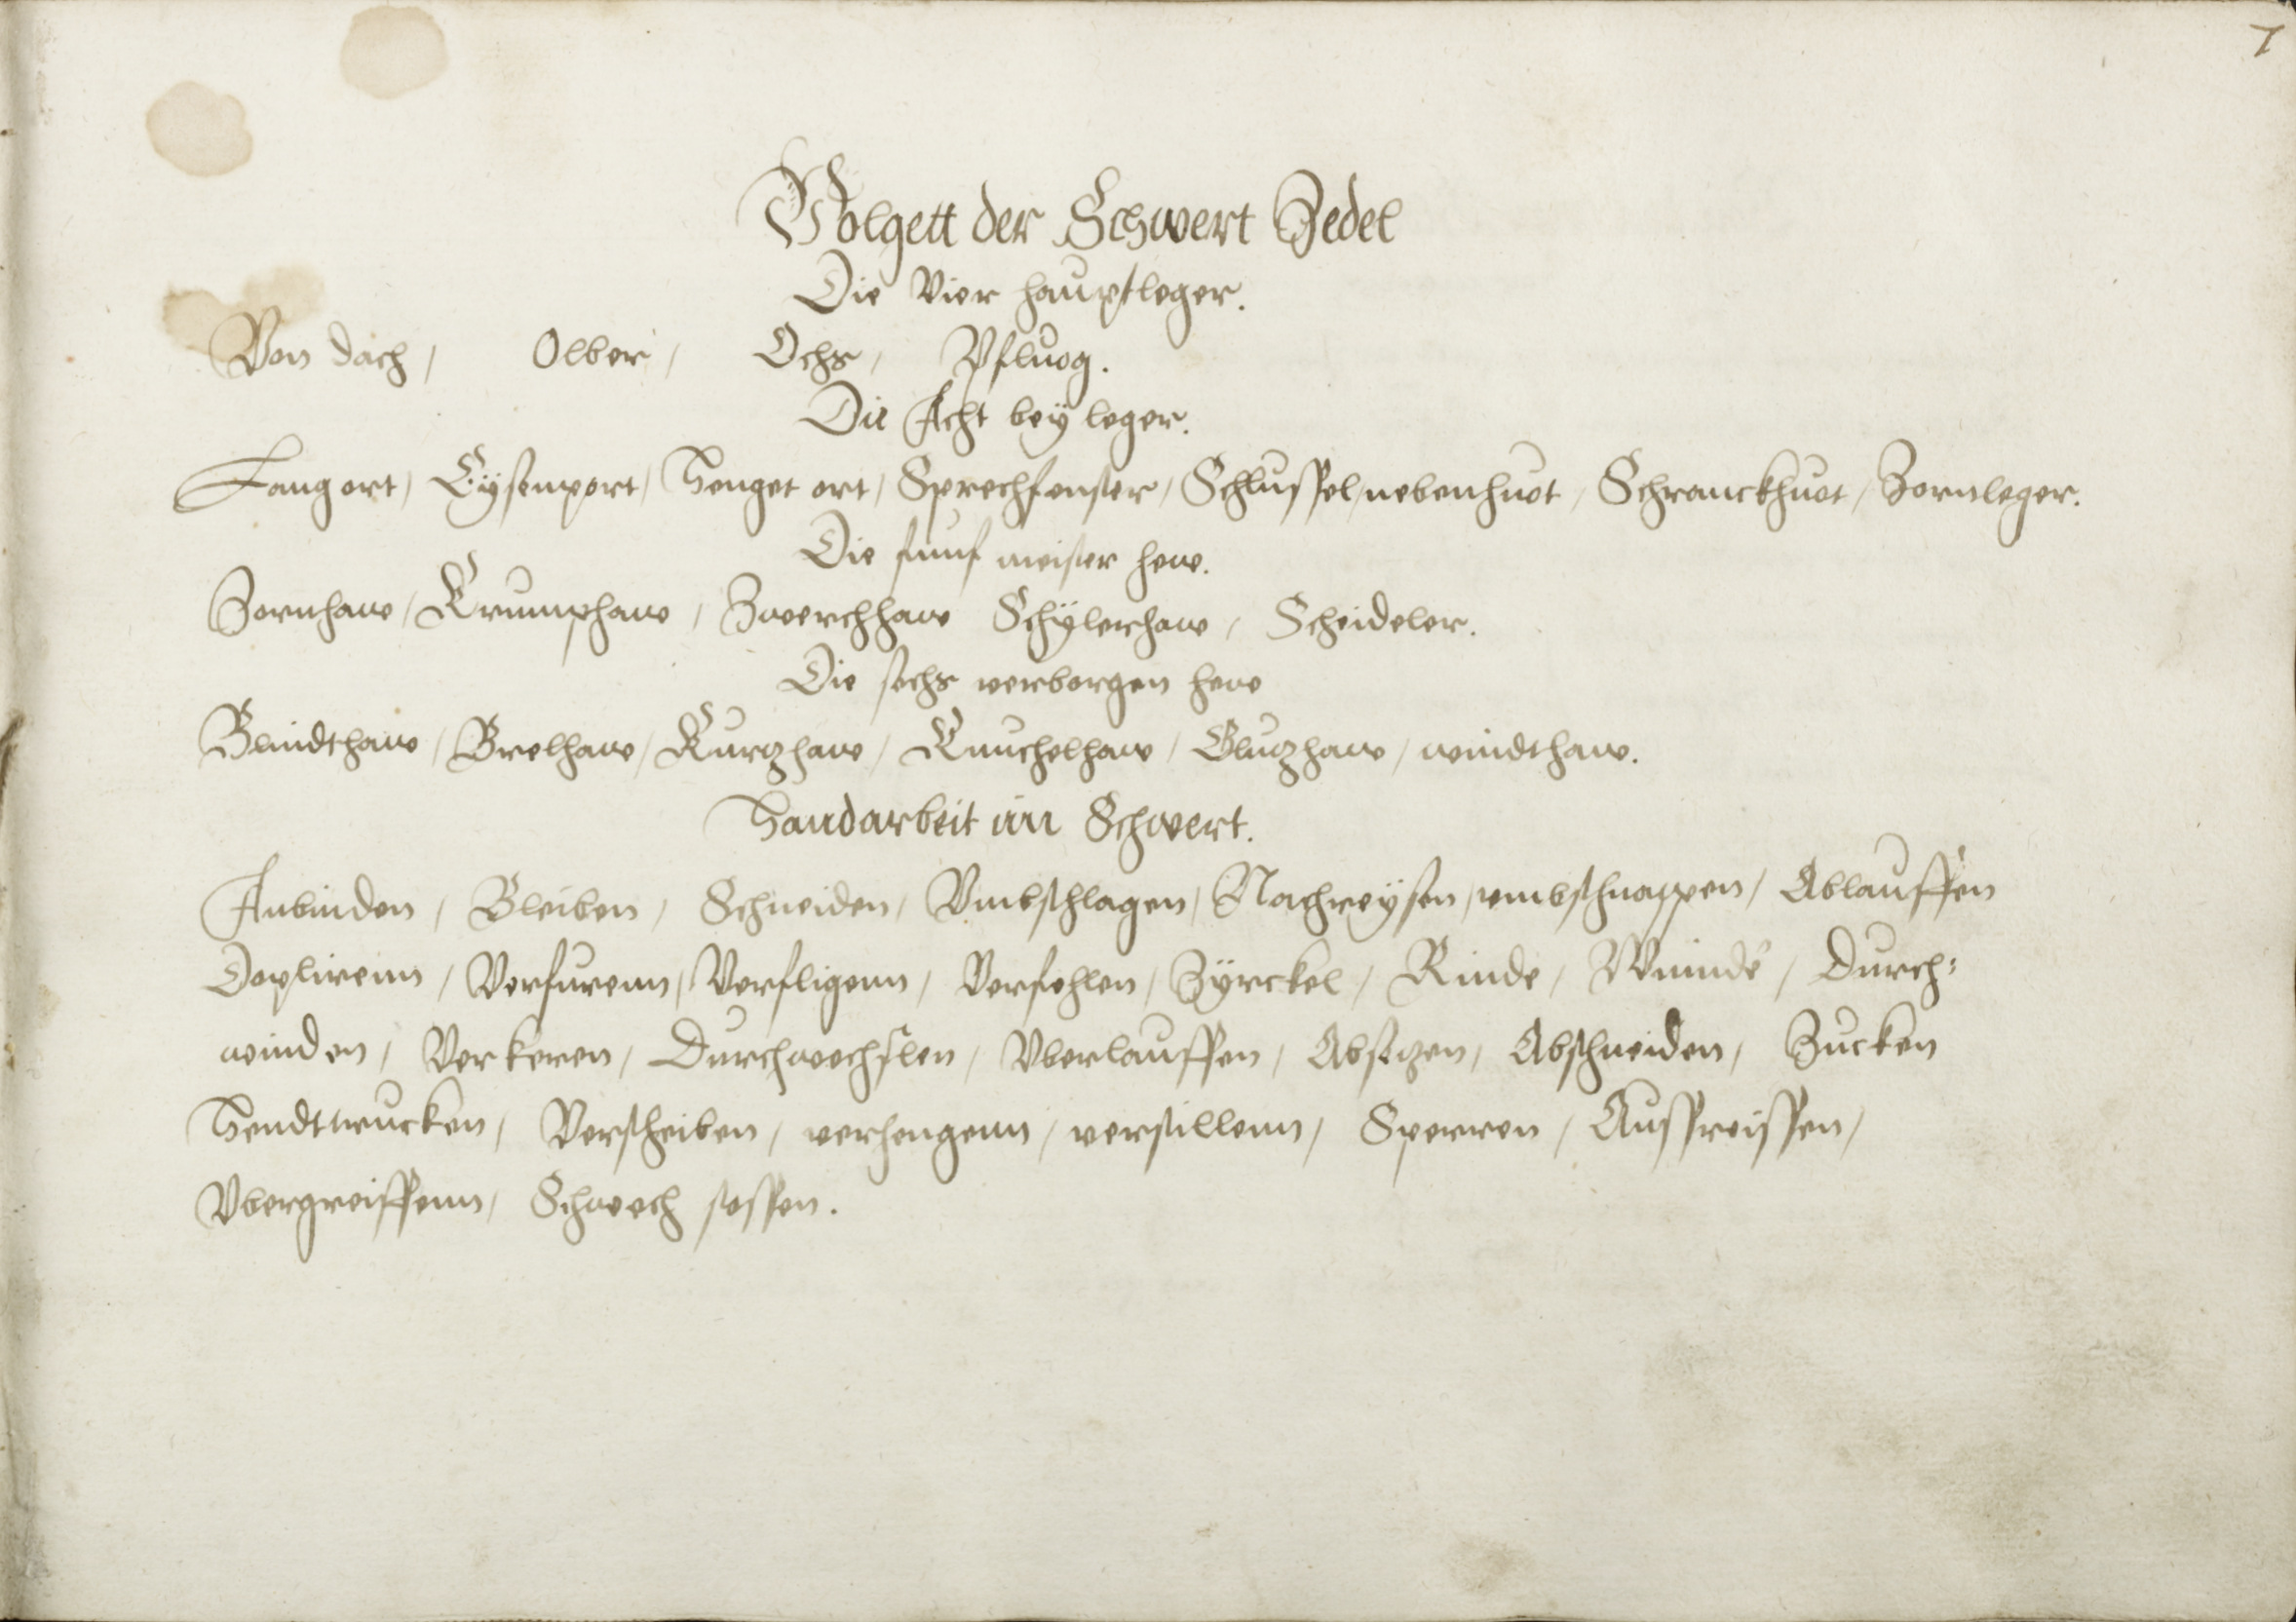 7
Volgett der Schwert Zedel
Die Vier hauptleger.
Von dach / Olber / Ochs / Pfluog.
Die Acht bey leger.
Langort / Eÿsenport / Henget ort / Sprechfenster / Schlussel / nebenhuot / Schranckhuot / Zornleger.
Die funf meister hew.
Zornhaw / Krumphaw / Zwerchhaw Schÿlerhaw / Scheideler.
Die sechs verborgen hew
Blindthaw / Brelhaw / Kurtzhaw / Knuchelhaw / Glutzhaw / windthaw.
Handarbeit im Schwert.
Anbinden / Bleiben / Schneiden / Vmbschlagen / Nachreÿsen / vmbschnappen / Ablauffen
Doplirenn / Verfurenn / Verfligenn / Verfehlen / Zÿrckel / Rinde / Winde / Durch=
winden / Verkeren / Durchwechslen / Vberlauffen / Absetzen / Abschneiden / Zucken
Hendttrucken / Verscheiben / verhengenn / verstillenn / Sperren / Ausreissen /
Vbergreiffenn / Schwech stossen.